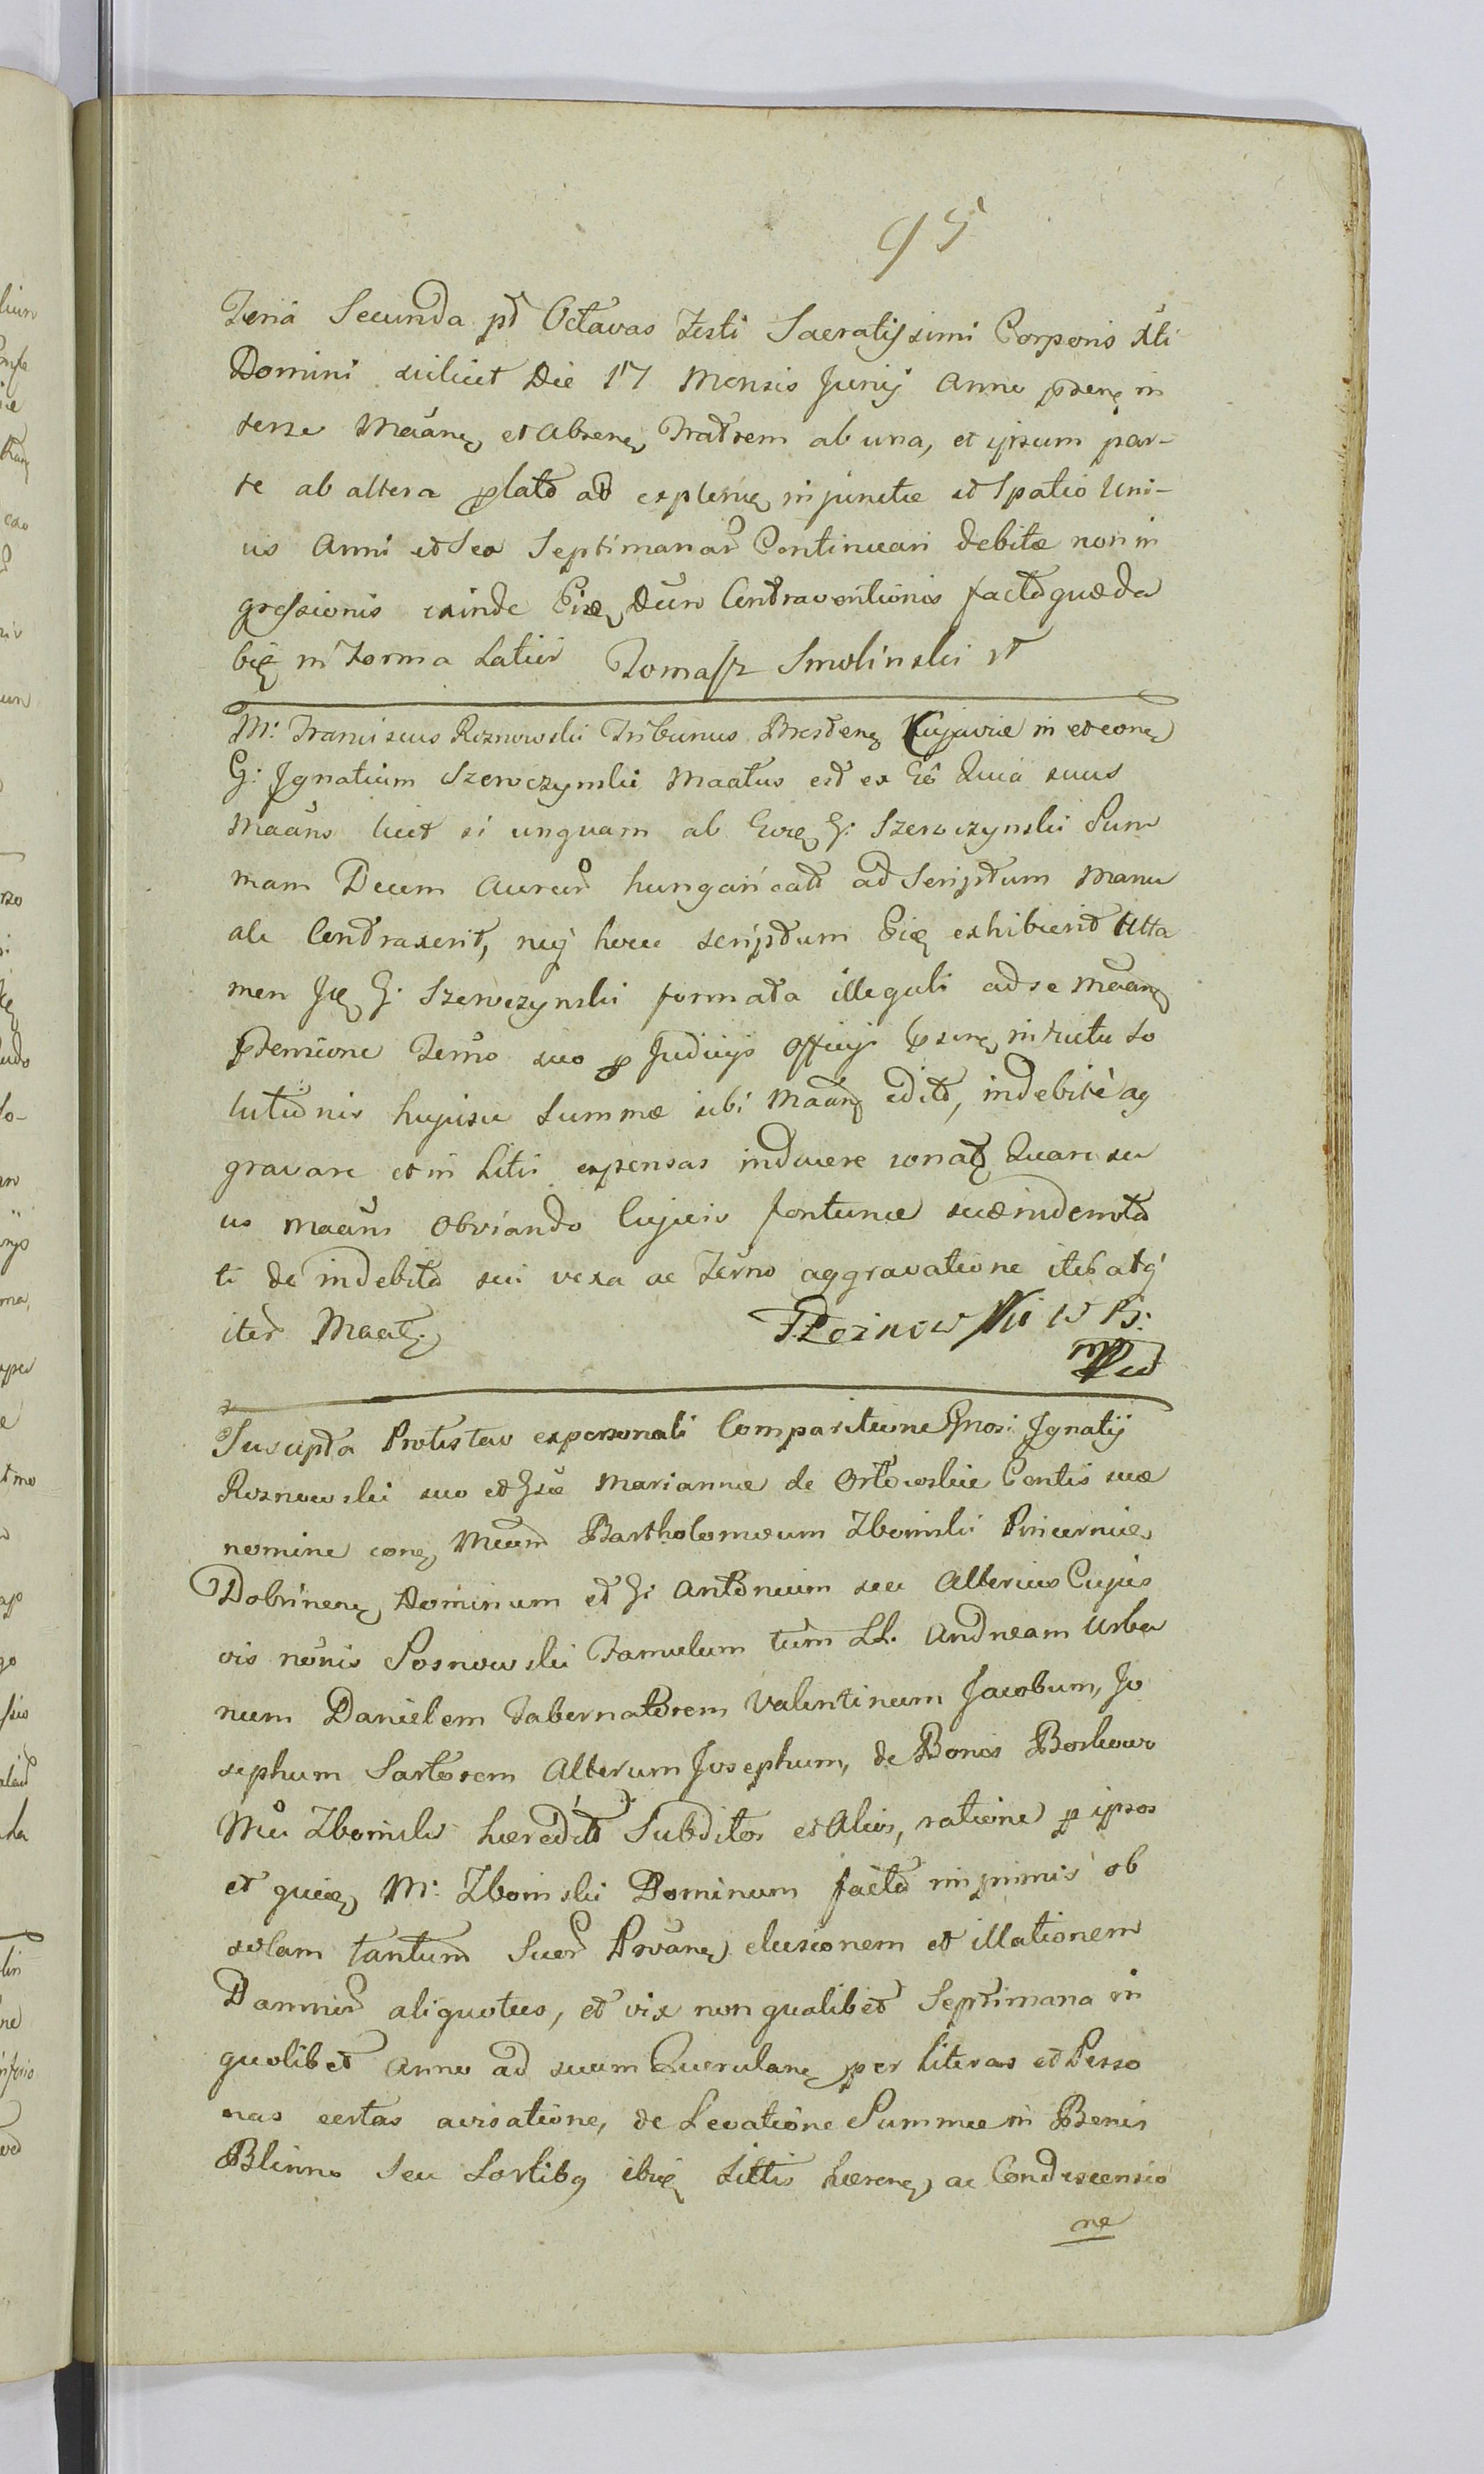 95
Feria Secunda pt Octavas Festi Sacratissimi Corporis Xti
Domini scilicet Die 17 Mensis Junij Anno prsens in
terse Maāns et Absens Fratrem ab una, et ipsum par-
te ab altera plato ad explens injunctæ et Spatio Uni-
us Anni et Sex Septimanar Continuari debitæ non in
gressionis exinde Eisq Contraventionis facto quæda
in Forma Latior Tomasz Smolinski
M: Franciscus Roznowski Tribunus Bresten Cujaviæ in et con
G: Ignatium Szewczynski Maatus est ex Eo Quia suus
Maāns licet si unquam ab G: Szewczynski Sum
mam Decem Aureor hungaricat ad Scriptum Manu
ale Contraxerit, neq hocce scriptum exhibuerit Atta
men G: Szewczynski formata illegali ad se Maān
prtensione Termo suo p Judicijs Officij in rictu so
lutionis hujusce Summæ sibi Maān edito, indebitè ag
gravare et in Litis expensas inducere conat Quare su
us Maāns Obviando Cujusvis fortunæ suæ indemta
ti de indebito sui vexa ac Termo aggravatione iteratq
iter Maat
F. Roznowski W B:
mp
Suscepta Protestao ex personali Comparitione Gnosi Ignatij
Roznowski suo et Gsæ Mariannæ de Ortowskie Contis suæ
nomine con Mcum Bartholomæum Zboinski Pincernie
Dobrinen Dominum et G: Antonium seu Alterius Cujus
vis nōnis Sosnowski Famulum tum LL. Andream Urba
num Danielem Tabernatorem Valentinum Jacobum, Jo
sephum Sartorem Alterum Josephum, de Bonis Borkowo
Mci Zboinski hæredit Subditos et Alios, ratione p ipsos
et M: Zboinski Dominum facto inprimis ob
solam tantum Suor elusionem et illationem
Damnor aliquoties, et vix non qualibet Septimana in
quolibet Anno ad suum Querulan per Literas et Perso
nas certas avisatione, de Levatione Summæ in Bonis
Blinno seu Sortibq Sittis hæren ac Condescensio
ne